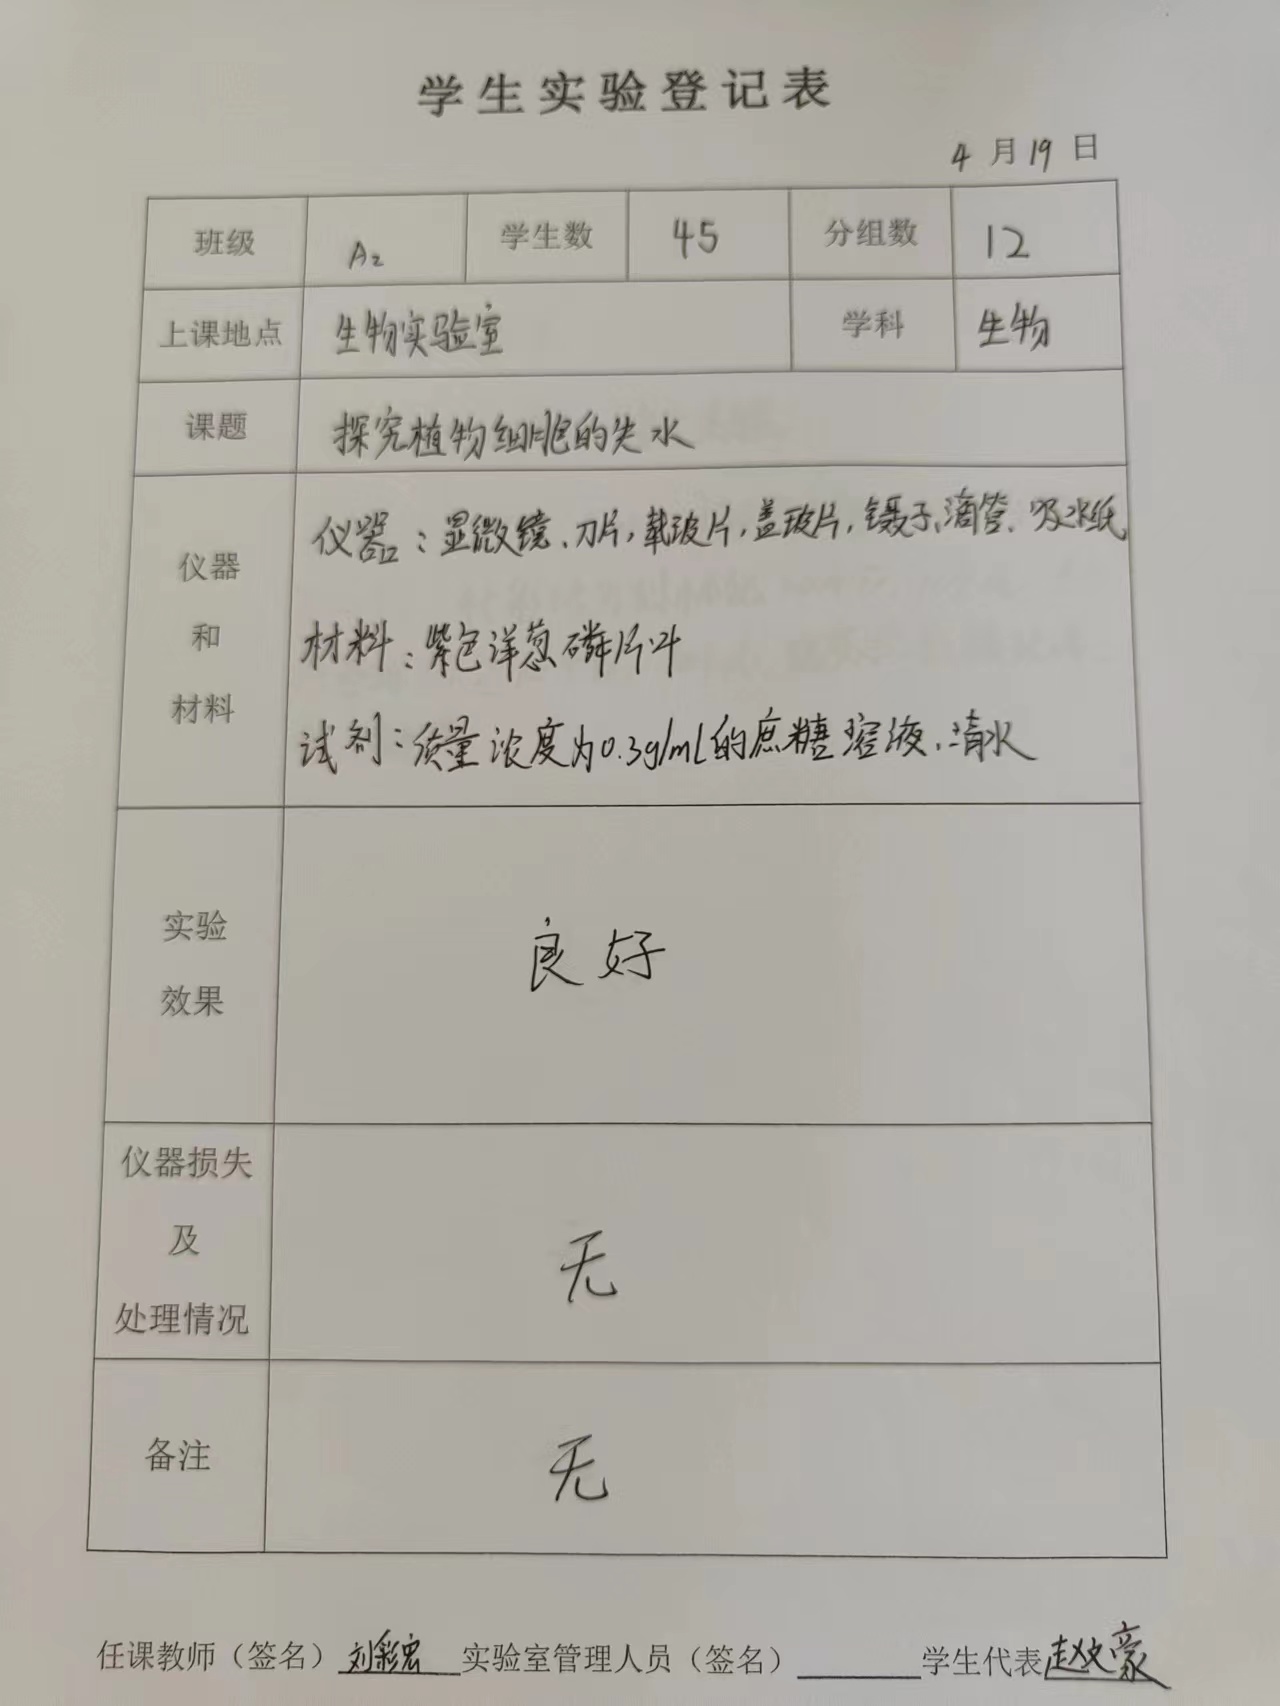 学生实验登记表
4月19日
班级 A2 学生数 45 分组数 12
上课地点 生物实验室 学科 生物
课题 探究植物细胞的失水
仪器和材料
仪器：显微镜、刀片，载玻片，盖玻片，镊子、滴管、吸水纸
材料：紫色洋葱磷片叶
试剂：质量浓度为0.3g/mL的蔗糖溶液、清水
实验
效果
良好
仪器损失
及
处理情况
无
备注 无
任课教师（签名）刘彩宏 实验室管理人员（签名） 学生代表赵文豪